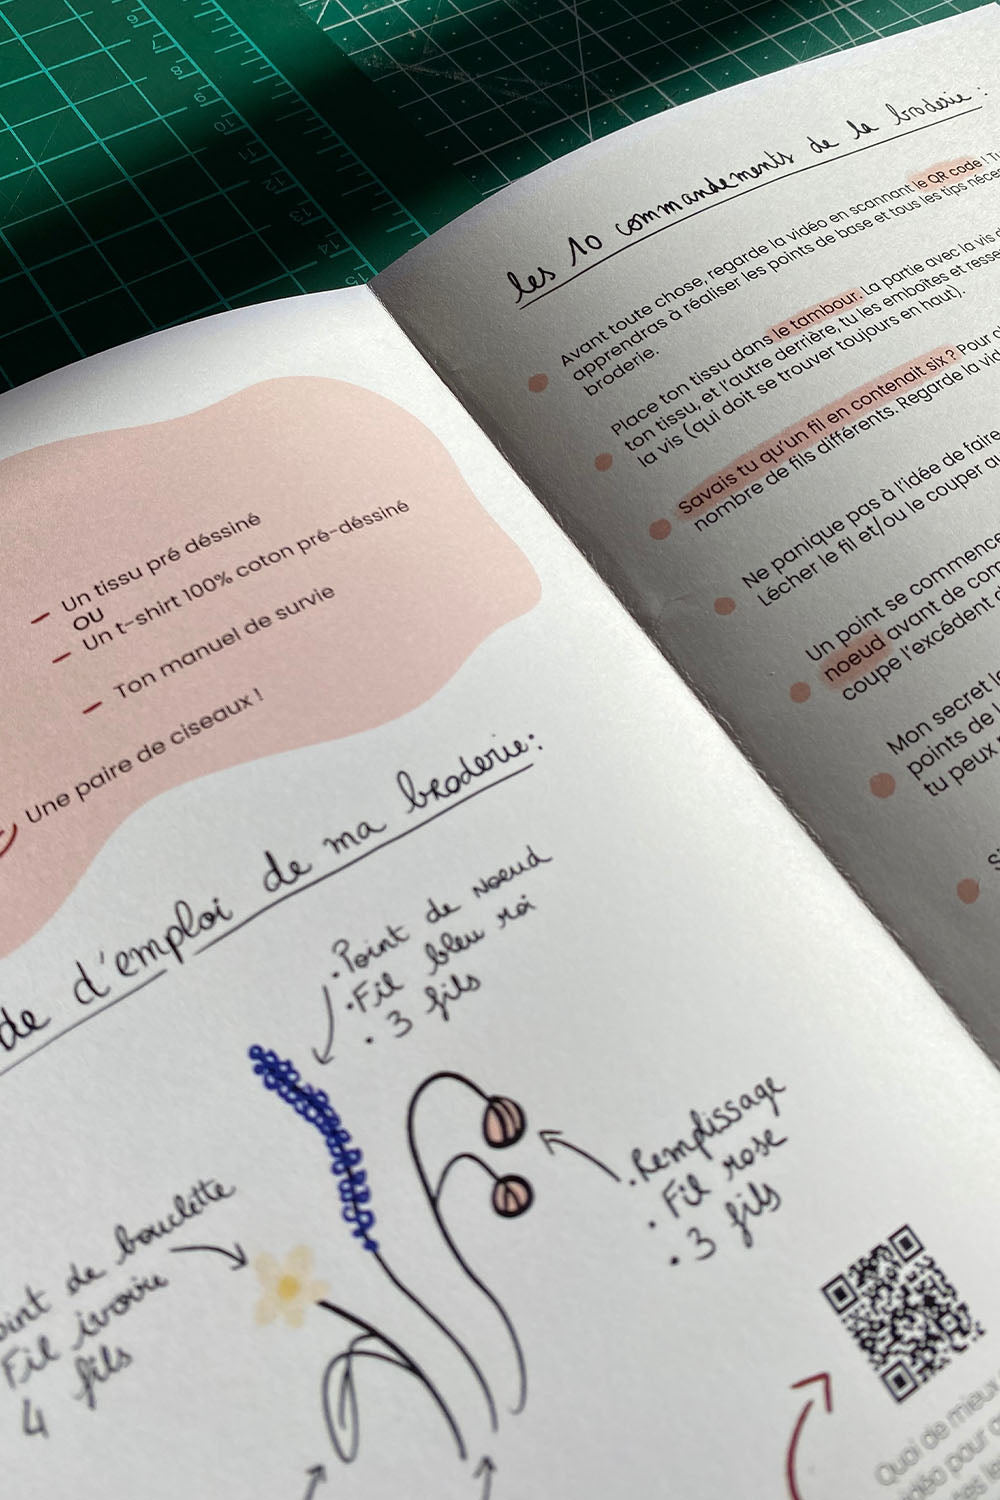 Un tissu pré déssiné
OU
Un t-shirt 100% coton pré-déssiné
Ton manuel de survie
Une paire de ciseaux !
de d'emploi de ma broderie:
• Point de noeud
• Fil bleu roi
• 3 fils
• Remplissage
• Fil rose
• 3 fils
de boulette
Fil ivoire
4 fils
Quoi de mieux
pour
les 10 commandements de la broderie :
Avant toute chose, regarde la vidéo en scannant le QR code ! Tu
apprendras à réaliser les points de base et tous les tips
broderie.
Place ton tissu dans le tambour. La partie avec la vis
ton tissu, et l'autre derrière, tu les emboîtes et
la vis (qui doit se trouver toujours en haut).
Savais tu qu'un fil en contenait six ? Pour
nombre de fils différents. Regarde la
Ne panique pas à l'idée de faire
Lécher le fil et/ou le couper
Un point se commence
noeud avant de
coupe l'excédent
Mon secret
points de
tu peux
15
14
13
12
11
10
9
8
7
6